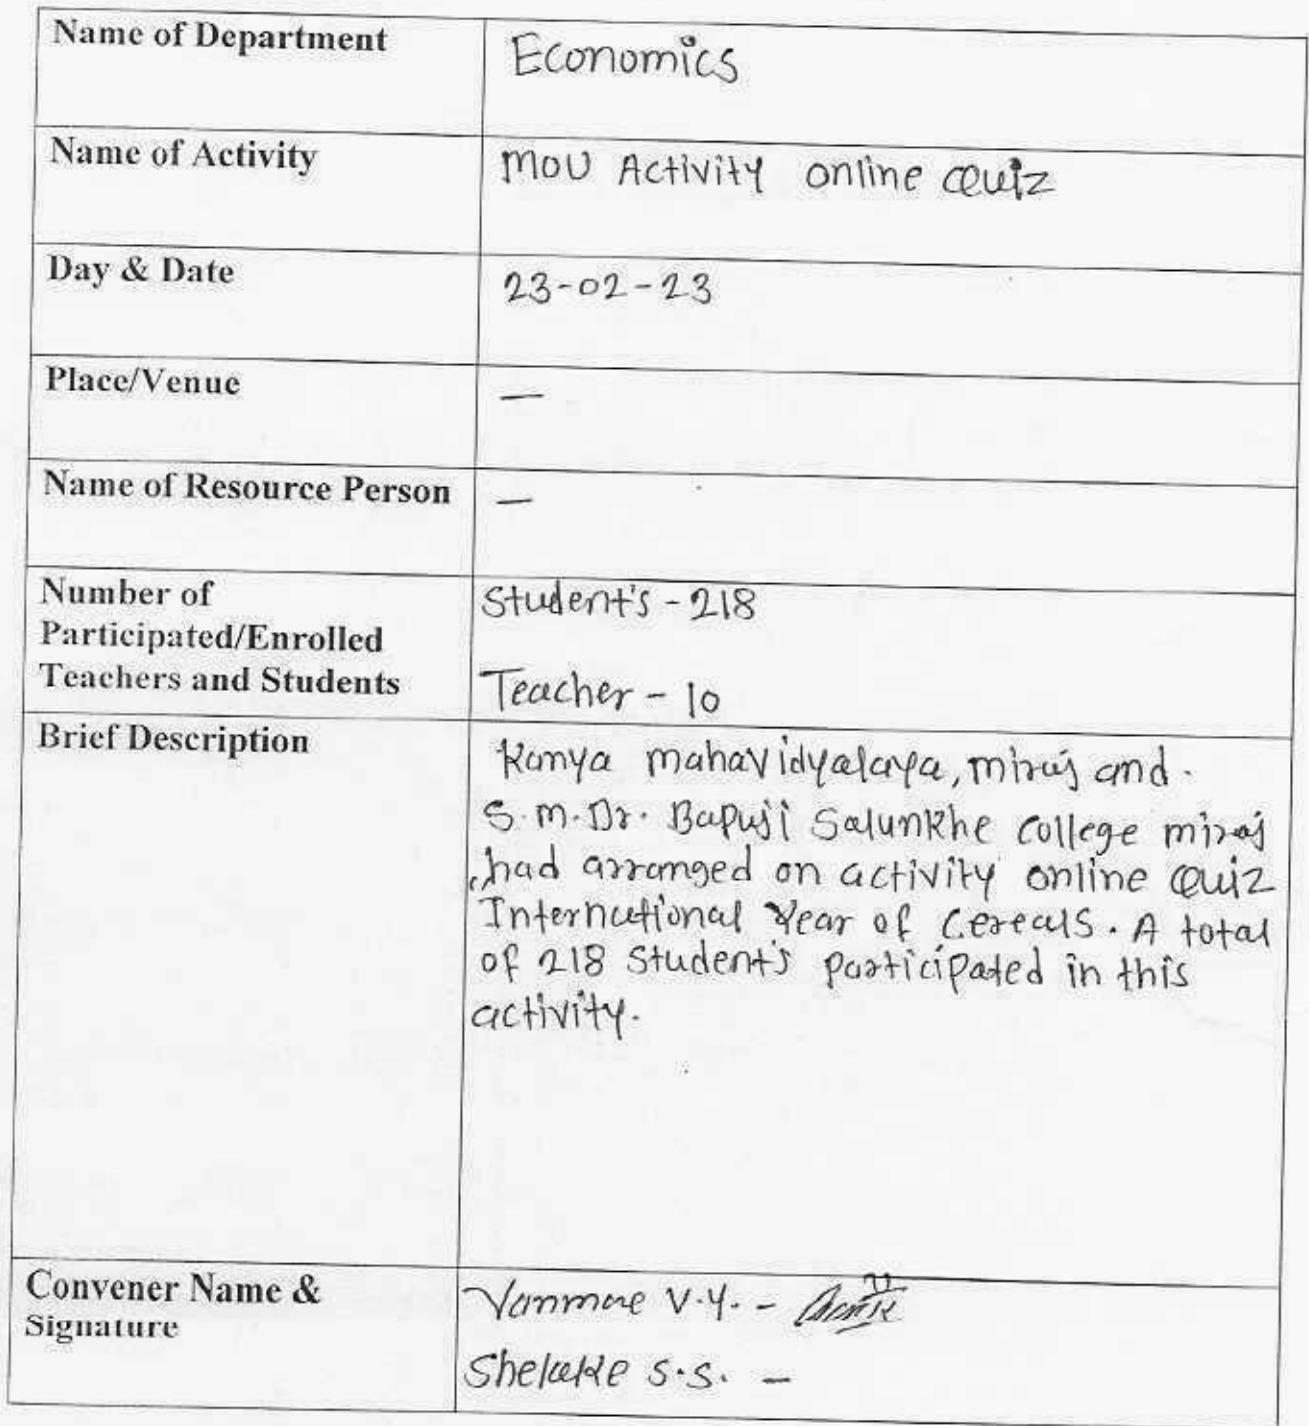 Name of Department
Economics
Name of Activity
MOU Activity online Quiz
Day & Date
23-02-23
Place/Venue
—
Name of Resource Person
—
Number of
Participated/Enrolled
Teachers and Students
Student's - 218
Teacher - 10
Brief Description
Kanya mahavidyalaya, miraj and.
S.M. Dr. Bapuji Salunkhe college miraj
,had arranged on activity online Quiz
International Year of Cereals. A total
of 218 Student's participated in this
activity.
Convener Name &
Signature
Vanmore V.Y. -
Shelake S.S. -